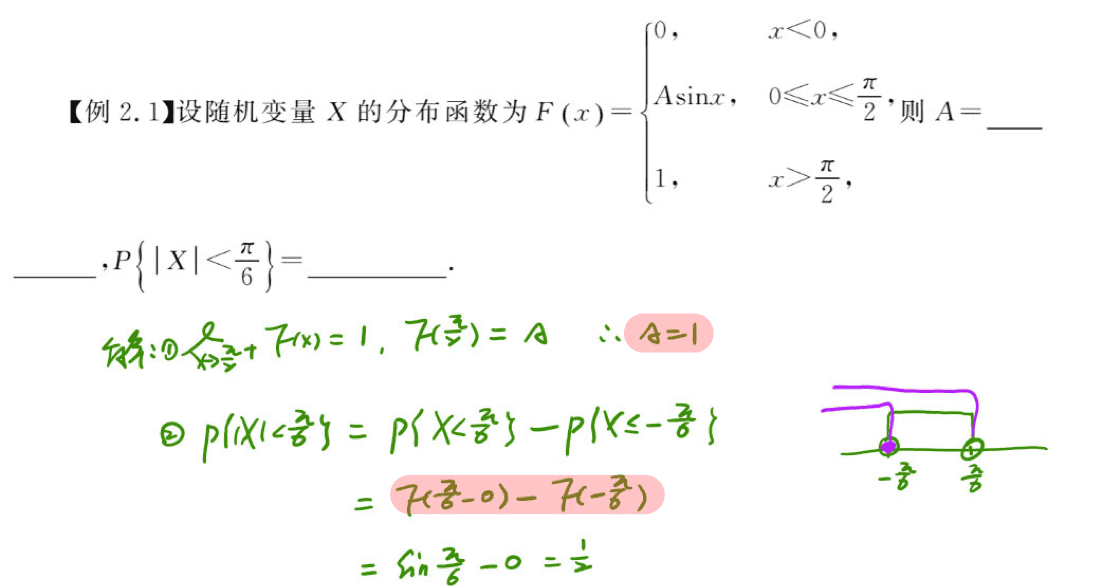 【例 2.1】设随机变量 X 的分布函数为 F(x)={0, x<0, Asinx, 0≤x≤π/2, 1, x>π/2, 则 A=____
______,P{|X|<π/6}=__________.
解:① lim x→π/2+ F(x)=1, F(π/2)=A ∴ A=1
② P{|X|<π/6} = P{X<π/6} - P{X≤-π/6}
= F(π/6-0) - F(-π/6)
= sin π/6 - 0 = 1/2
-π/6 π/6